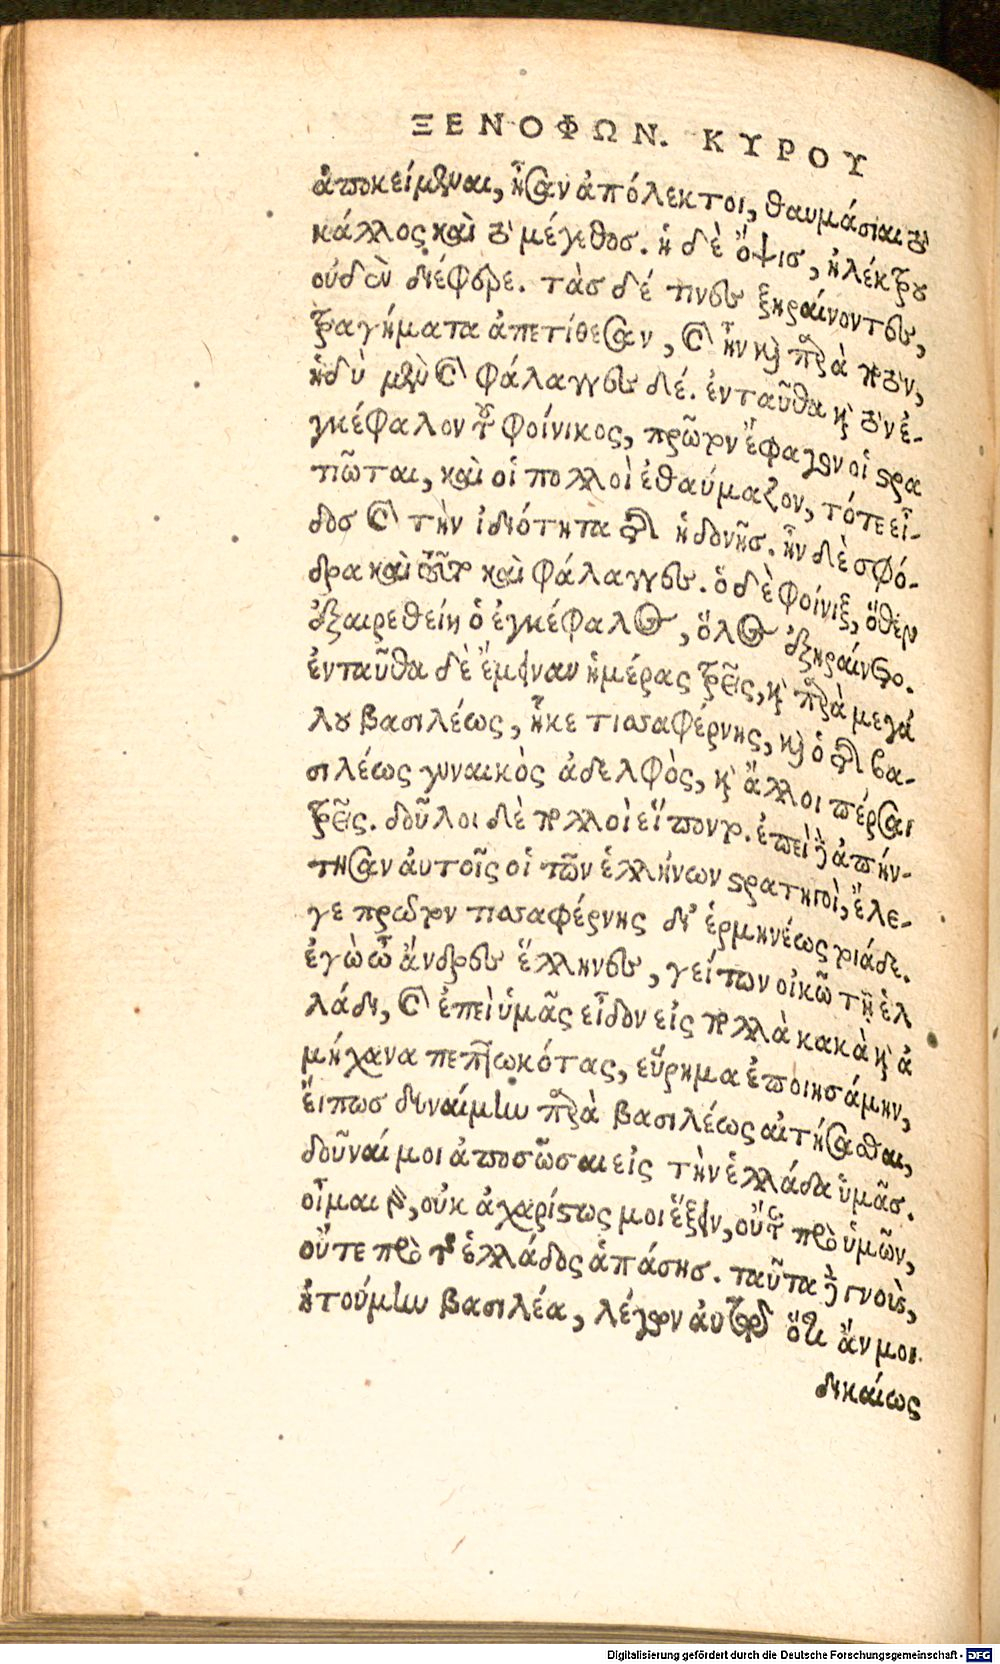 ΞΕΝΟΦΩΝ. ΚΥΡΟΥ
ἀποκείμεναι, ἦσαν ἀπόλεκτοι, θαυμάσιαι τὸ
κάλλος καὶ τὸ μέγεθος. ἡ δὲ ὄψις, ἠλέκτρου
οὐδὲν διέφερε. τὰς δέ τινες ξηραίνοντες,
τραγήματα ἀπετίθεσαν, καὶ ἦν καὶ παρὰ πότον,
ἡδὺ μὲν καὶ φάλαγγες δέ. ἐνταῦθα καὶ τὸν ἐ-
γκέφαλον τοῦ φοίνικος, πρῶτον ἔφαγον οἱ στρα
τιῶται, καὶ οἱ πολλοὶ ἐθαύμαζον, τότε εἶ-
δος καὶ τὴν ἰδιότητα τῆς ἡδονῆς. ἦν δὲ σφό-
δρα καὶ τοῦτο καὶ φάλαγγες. ὁ δὲ φοίνιξ, ὅθεν
ἐξαιρεθείη ὁ ἐγκέφαλος, ὅλος ἐξηραίνετο.
ἐνταῦθα δὲ ἔμειναν ἡμέρας τρεῖς, καὶ παρὰ μεγά
λου βασιλέως, ἧκε τισσαφέρνης, καὶ ὁ τῆς βα-
σιλέως γυναικὸς ἀδελφὸς, καὶ ἄλλοι πέρσαι
τρεῖς. δοῦλοι δὲ πολλοὶ εἵποντο. ἐπεὶ δὲ ἀπήν-
τησαν ἀυτοῖς οἱ τῶν ἑλλήνων στρατηγοὶ, ἔλε-
γε πρῶτον τισσαφέρνης δι' ἑρμηνέως τοιάδε.
ἐγὼ ὦ ἄνδρες ἕλληνες, γείτων οἰκῶ τῇ ἑλ
λάδι, καὶ ἐπεὶ ὑμᾶς εἶδον εἰς πολλὰ κακὰ καὶ ἀ
μήχανα πεπτωκότας, εὕρημα ἐποιησάμην,
ἔιπως δυναίμην παρὰ βασιλέως αἰτήσασθαι,
δοῦναί μοι ἀποσῶσαι εἰς τὴν ἑλλάδα ὑμᾶς.
οἶμαι γὰρ, οὐκ ἀχαρίστως μοι ἕξειν, οὔτε πρὸ ὑμῶν,
οὔτε πρὸ τῆς ἑλλάδος ἁπάσης. ταῦτα δὲ γνοὺς,
ἠτούμην βασιλέα, λέγων ἀυτῷ ὅτι ἄν μοι
δικαίως
Digitalisierung gefördert durch die Deutsche Forschungsgemeinschaft - DFG